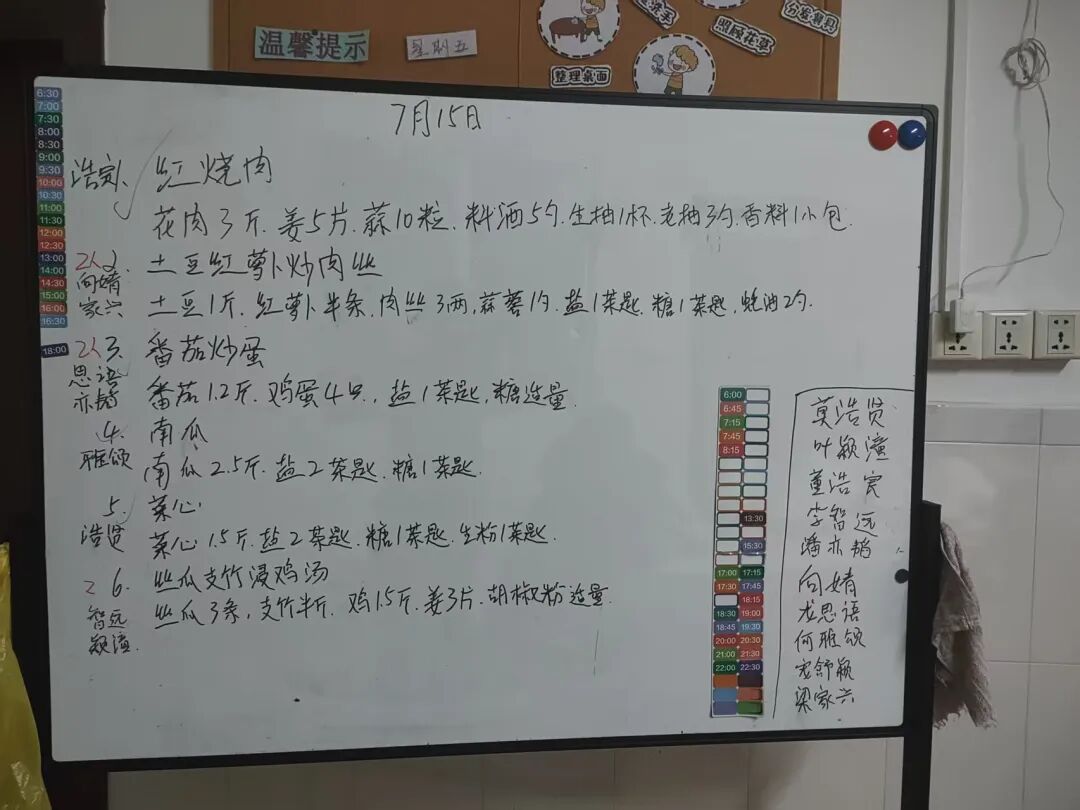 温馨提示
星期五
洗手
照顾花草
分发餐具
整理桌面
7月15日
6:30
7:00
7:30
8:00
8:30
9:00
9:30
10:00
10:30
11:00
11:30
12:00
12:30
13:00
14:00
14:30
15:00
16:00
16:30
18:00
浩宾、红烧肉
花肉3斤.姜5片.蒜10粒.料酒5勺.生抽1杯.老抽3勺.香料1小包.
2人2.土豆红萝卜炒肉丝
向婧
家六
土豆1斤.红萝卜半条.肉丝3两,蒜蓉1勺.盐1茶匙.糖1茶匙,蚝油2勺.
2人3.番茄炒蛋
思语
亦韬
番茄1.2斤.鸡蛋4只.,盐1茶匙,糖适量.
4.南瓜
雅颂
南瓜2.5斤.盐2茶匙.糖1茶匙.
5.菜心.
浩贤
菜心1.5斤.盐2茶匙.糖1茶匙.生粉1茶匙.
2 6.丝瓜支竹浸鸡汤
智远
颖潼.
丝瓜3条,支竹半斤.鸡1.5斤.姜3片.胡椒粉适量.
6:00
6:45
7:15
7:45
8:15
13:30
15:30
17:00 17:15
17:30 17:45
18:15
18:30 19:00
18:45 19:30
20:00 20:30
21:00 21:30
22:00 22:30
莫浩贤
叶颖潼
董浩宾
李智远
潘亦韬
向婧
龙思语
何雅颂
舒颖
梁家六